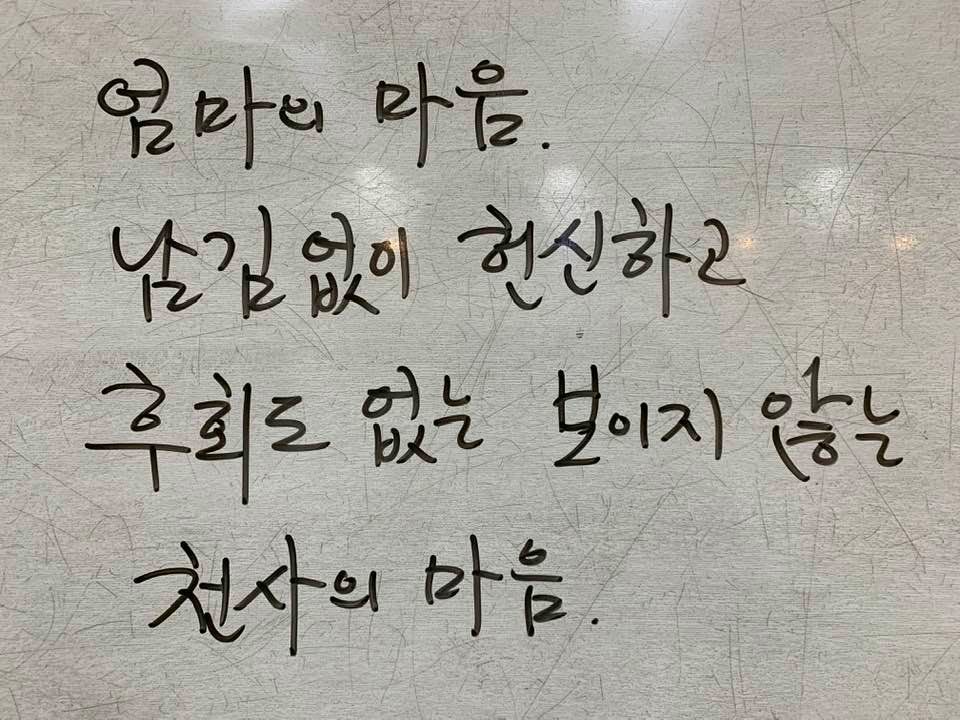 엄마의 마음.
남김없이 헌신하고
후회도 없는 보이지 않는
천사의 마음.